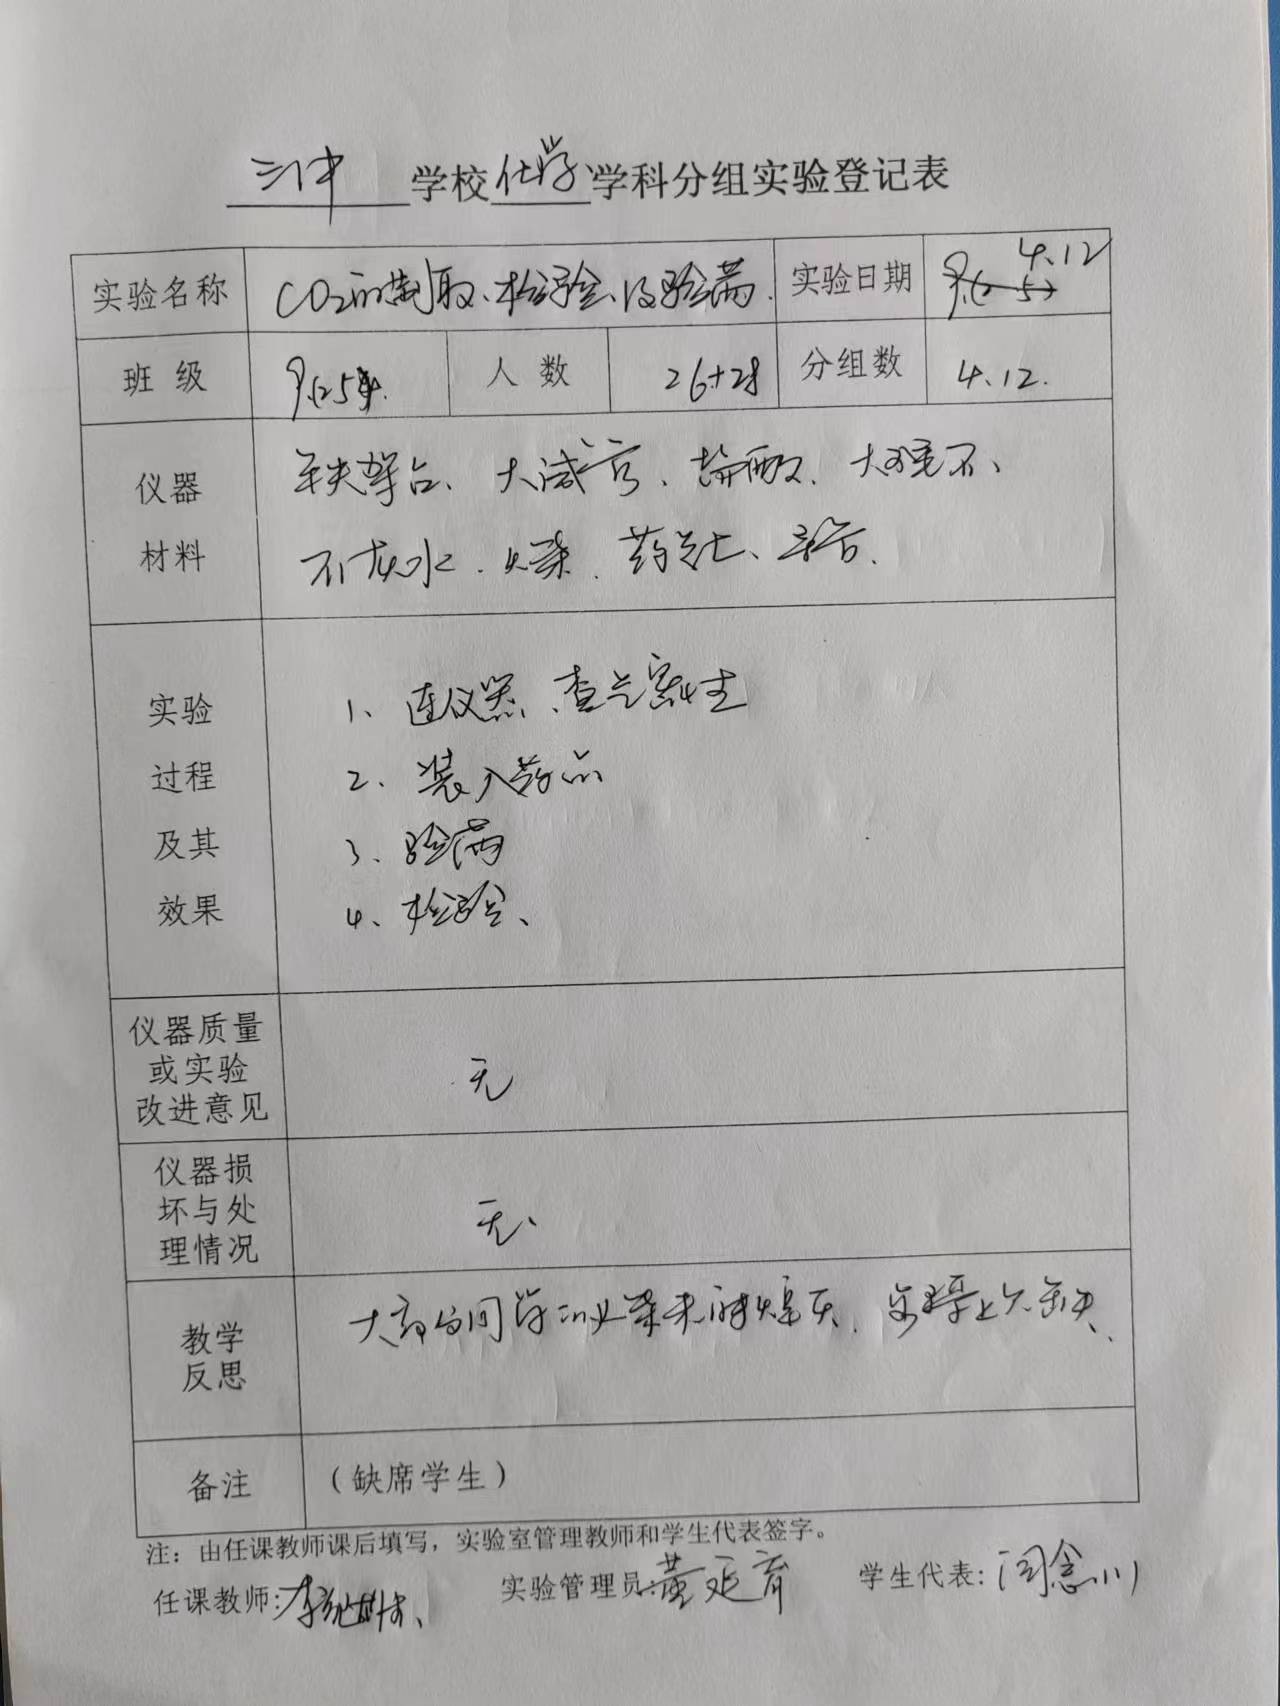 三中 学校 化学 学科分组实验登记表
实验名称 CO2的制取、检验、及验满. 实验日期 4.12
班 级 人 数 26+28 分组数 4.12.
仪器 铁架台、大试管、
材料 石灰水、火柴、药匙、
实验 1、连仪器、查气密性
过程 2、装入药品
及其 3、验满
效果 4、检验、
仪器质量
或实验 无
改进意见
仪器损
坏与处 无、
理情况
教学 大部分同学的火柴未
反思
备注 (缺席学生)
注：由任课教师课后填写，实验室管理教师和学生代表签字。
任课教师: 实验管理员: 黄延育 学生代表: 闫念川